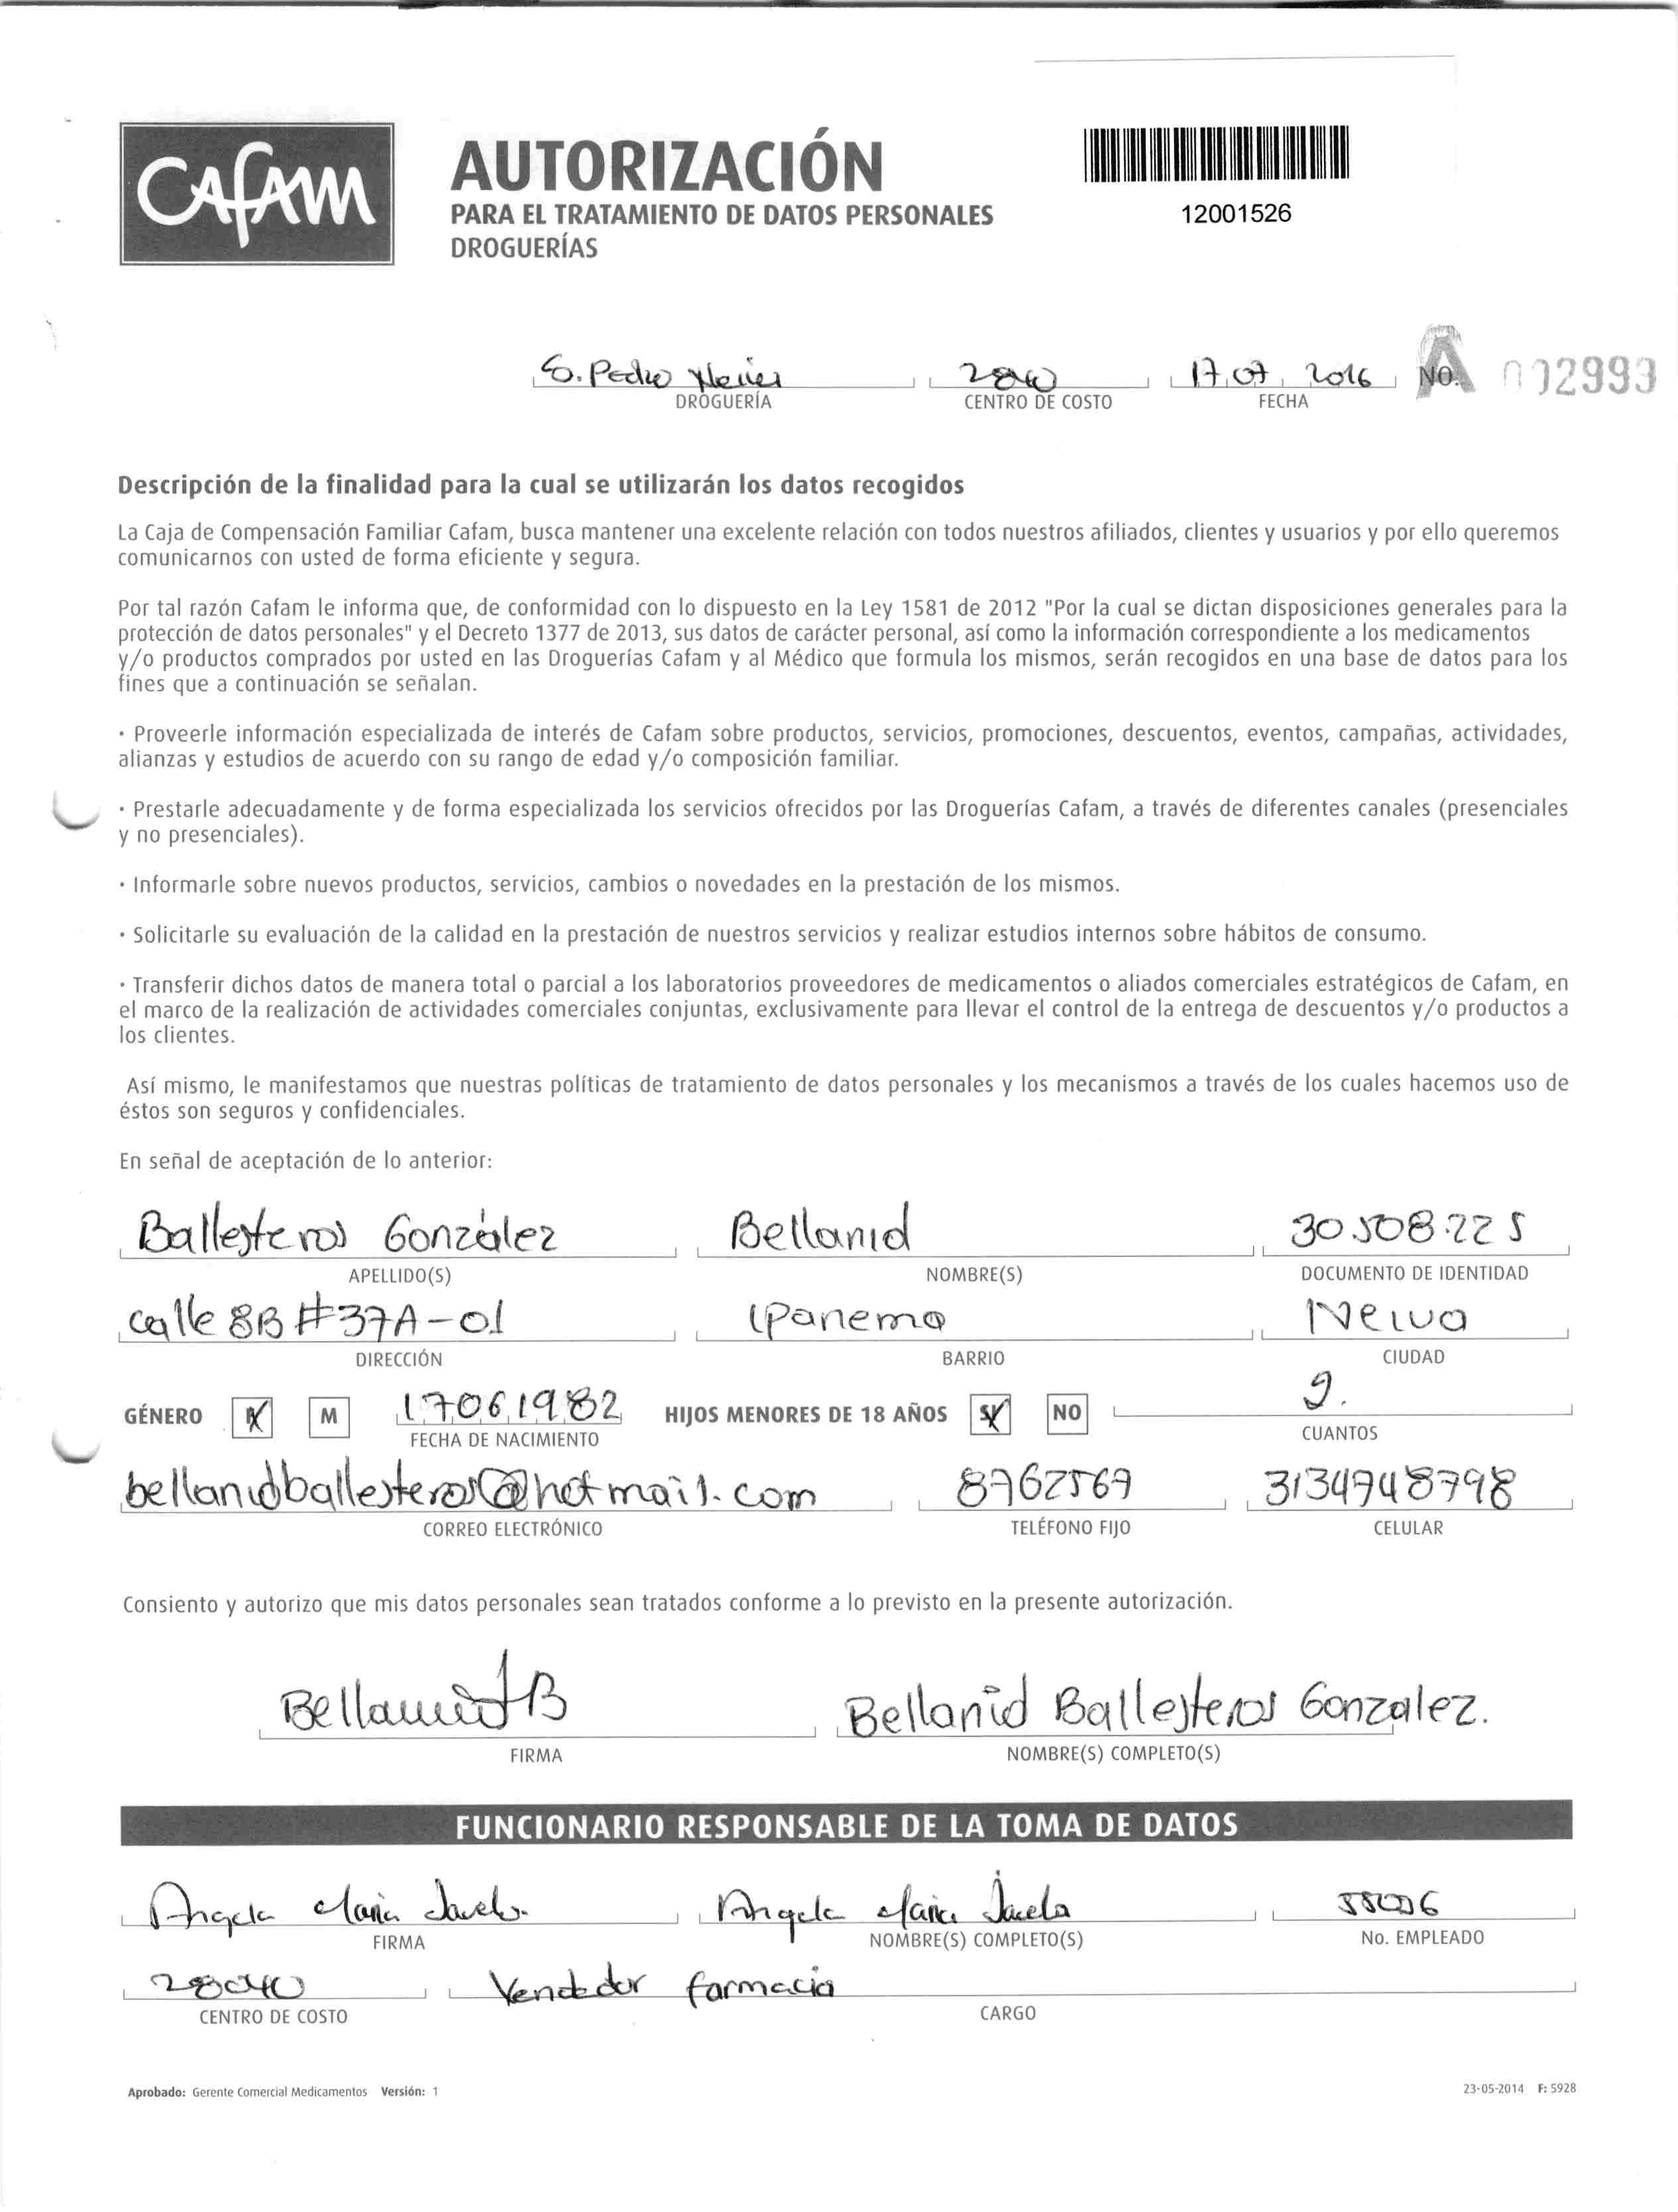 CAFAM
AUTORIZACIÓN
PARA EL TRATAMIENTO DE DATOS PERSONALES
DROGUERÍAS
12001526
S. Pedro 17 07 2016 A No. 002993
DROGUERÍA CENTRO DE COSTO FECHA
Descripción de la finalidad para la cual se utilizarán los datos recogidos
La Caja de Compensación Familiar Cafam, busca mantener una excelente relación con todos nuestros afiliados, clientes y usuarios y por ello queremos
comunicarnos con usted de forma eficiente y segura.
Por tal razón Cafam le informa que, de conformidad con lo dispuesto en la Ley 1581 de 2012 "Por la cual se dictan disposiciones generales para la
protección de datos personales" y el Decreto 1377 de 2013, sus datos de carácter personal, así como la información correspondiente a los medicamentos
y/o productos comprados por usted en las Droguerías Cafam y al Médico que formula los mismos, serán recogidos en una base de datos para los
fines que a continuación se señalan.
· Proveerle información especializada de interés de Cafam sobre productos, servicios, promociones, descuentos, eventos, campañas, actividades,
alianzas y estudios de acuerdo con su rango de edad y/o composición familiar.
· Prestarle adecuadamente y de forma especializada los servicios ofrecidos por las Droguerías Cafam, a través de diferentes canales (presenciales
y no presenciales).
· Informarle sobre nuevos productos, servicios, cambios o novedades en la prestación de los mismos.
· Solicitarle su evaluación de la calidad en la prestación de nuestros servicios y realizar estudios internos sobre hábitos de consumo.
· Transferir dichos datos de manera total o parcial a los laboratorios proveedores de medicamentos o aliados comerciales estratégicos de Cafam, en
el marco de la realización de actividades comerciales conjuntas, exclusivamente para llevar el control de la entrega de descuentos y/o productos a
los clientes.
Así mismo, le manifestamos que nuestras políticas de tratamiento de datos personales y los mecanismos a través de los cuales hacemos uso de
éstos son seguros y confidenciales.
En señal de aceptación de lo anterior:
Ballesteros Gonzàlez Bellanid 30.508.225
APELLIDO(S) NOMBRE(S) DOCUMENTO DE IDENTIDAD
calle 8B #37A-01 Ipanema Neiva
DIRECCIÓN BARRIO CIUDAD
GÉNERO M 17061982 HIJOS MENORES DE 18 AÑOS SI NO
FECHA DE NACIMIENTO CUANTOS
bellanidballesteros@hotmail.com 8762569 3134948798
CORREO ELECTRÓNICO TELÉFONO FIJO CELULAR
Consiento y autorizo que mis datos personales sean tratados conforme a lo previsto en la presente autorización.
Bellanid B Bellanid Ballesteros Gonzalez.
FIRMA NOMBRE(S) COMPLETO(S)
FUNCIONARIO RESPONSABLE DE LA TOMA DE DATOS
Angela Maria Angela Maria
FIRMA NOMBRE(S) COMPLETO(S) No. EMPLEADO
28040 Vendedor farmacia
CENTRO DE COSTO CARGO
Aprobado: Gerente Comercial Medicamentos Versión: 1 23-05-2014 F: 5928